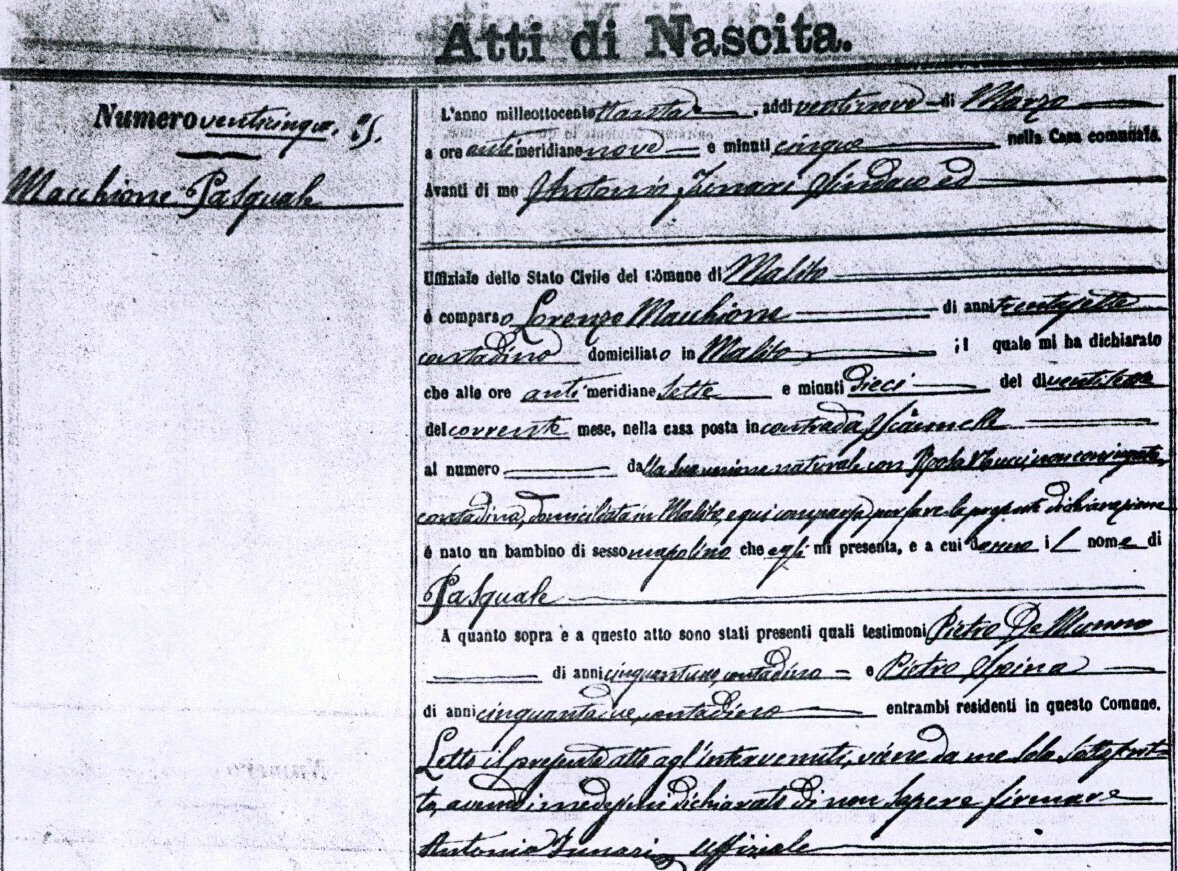 Atti di Nascita.
Numero venticinque. 25.
Macchione Pasquale
L'anno milleottocento , addì ventinove di Marzo
a ore anti meridiane nove e minuti cinque nella Casa comunale.
Avanti di me Antonio Funari Sindaco ed
Uffiziale dello Stato Civile del Comune di Malito
è comparso Lorenzo Macchione di anni trentasette
contadino domiciliato in Malito ; il quale mi ha dichiarato
che alle ore anti meridiane sette e minuti dieci del dì
del corrente mese, nella casa posta in contrada
al numero dalla sua unione naturale con non coniugata,
contadina, domiciliata in Malito, e qui comparsa per fare la presente dichiarazione
è nato un bambino di sesso mascolino che egli mi presenta, e a cui danno il nome di
Pasquale
A quanto sopra e a questo atto sono stati presenti quali testimoni Pietro De
di anni contadino e Pietro Spina
di anni contadino entrambi residenti in questo Comune.
Letto il presente atto agl'intervenuti, viene da me solo sottoscrit-
to, avendo i medesimi dichiarato di non sapere firmare
Antonio Funari Uffiziale